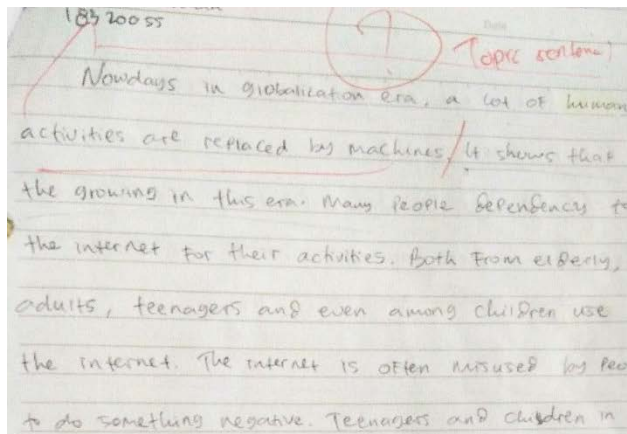 18320055
Topic sentence
Nowdays in globalization era, a lot of human
activities are replaced by machines, It shows that
the growing in this era. Many people dependency to
the internet for their activities. Both from elderly,
adults, teenagers and even among children use
the internet. The internet is often misused by
to do something negative. Teenagers and children in